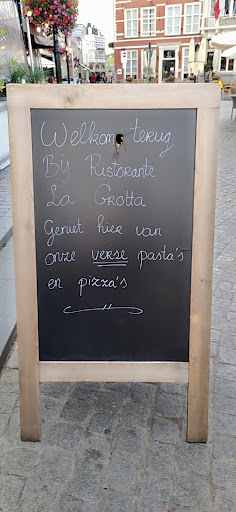 Welkom terug
Bij Ristorante
La Grotta
Geniet hier van
onze verse pasta's
en pizza's